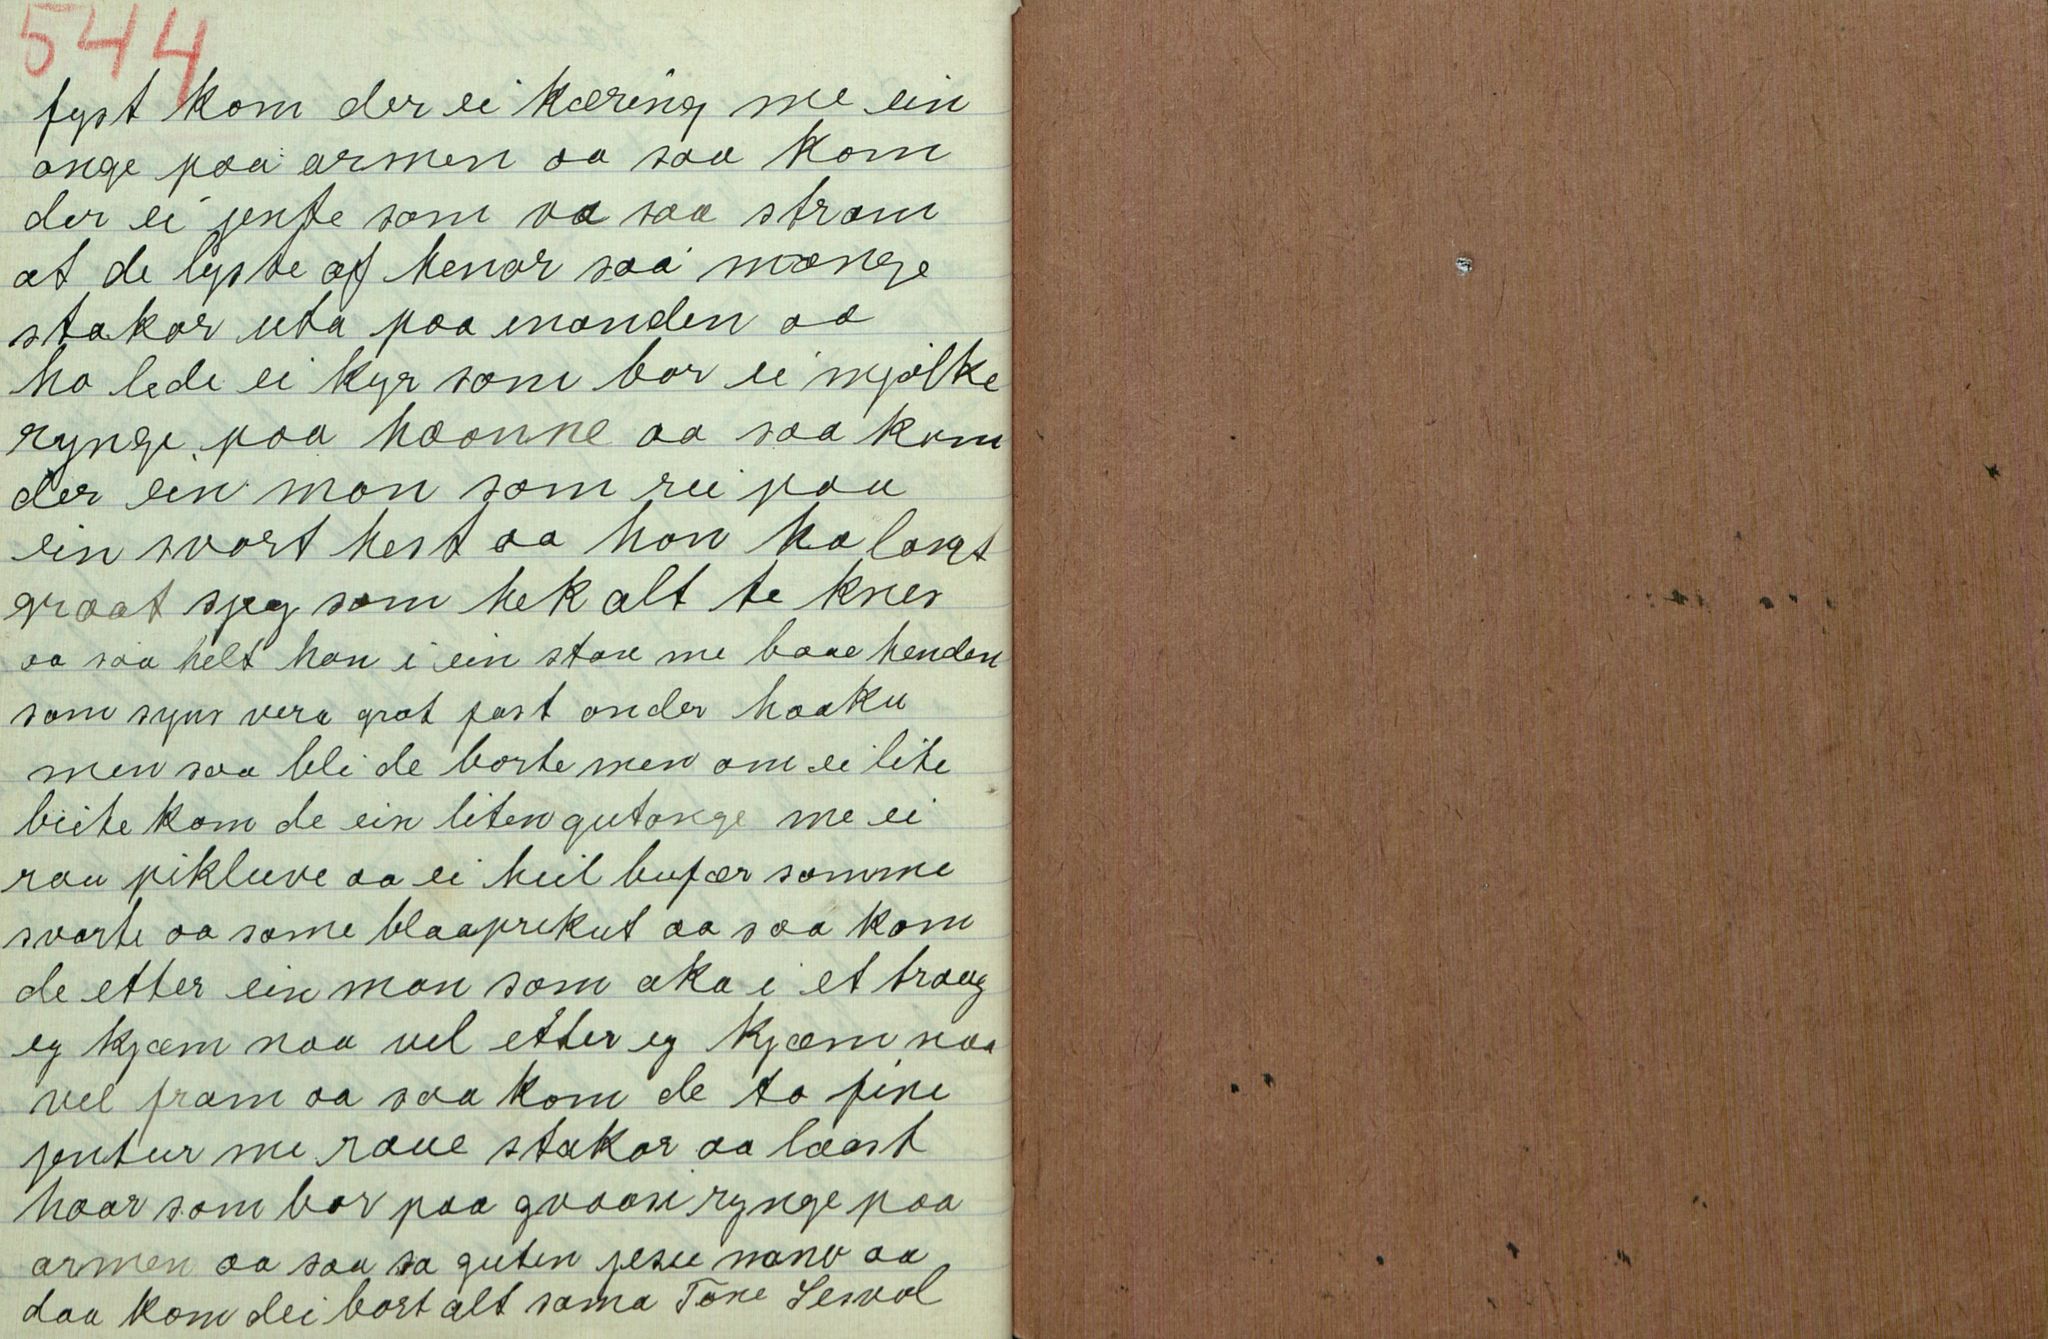 544
fyst kom der ei kæring me ein
onge paa armen aa saa kom
der ei jente som va saa stram
at de lyste af henar saa mange
stakar uta paa enanden aa
ho lede ei kyr som bar ei mjølke
rynge paa haanne aa saa kom
der ein man som rei paa
ein svart hest aa han ha langt
graat sjeg som hek alt te knes
aa saa helt han i ein stav me baae henden
som syns vera grot fast onder haaku
men saa blei de borte men om ei lite
beite kom de ein liten gutonge me ei
rau pikluve aa ei heil bufær somme
svarte aa some blaaprikut aa saa kom
de etter ein man som aka i et traug
eg kjæm naa vel etter eg kjæm naa
vel fram aa saa kom de to fine
jentur me raue stakar aa laast
haar som bar paa gvaasi rynge paa
armen aa saa sa guten jesu nanv aa
daa kom dei bort alt sama Tone Lesvol